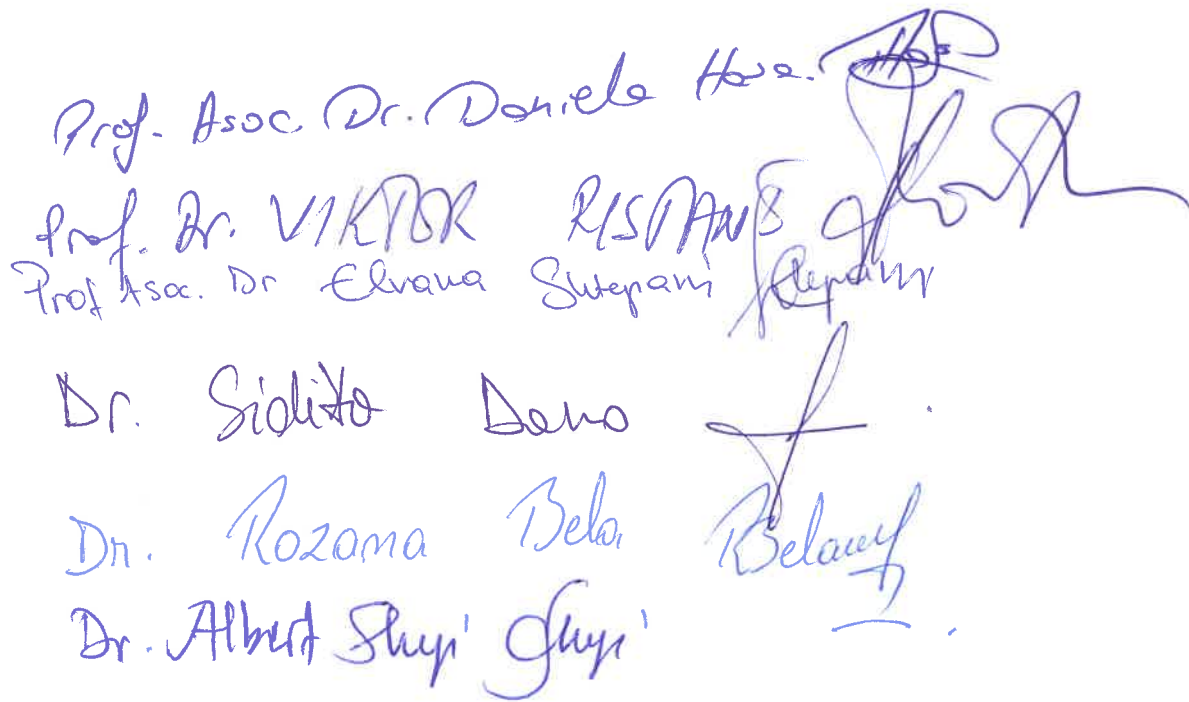 Prof. Asoc. Dr. Daniela Hoxa.
Prof. Dr. VIKTOR RISTANI
Prof Asoc. Dr Elvana Shtepani Shtepani
Dr. Sidita Dano
Dr. Rozana Bela Belaj
Dr. Albert Shyi Shyi